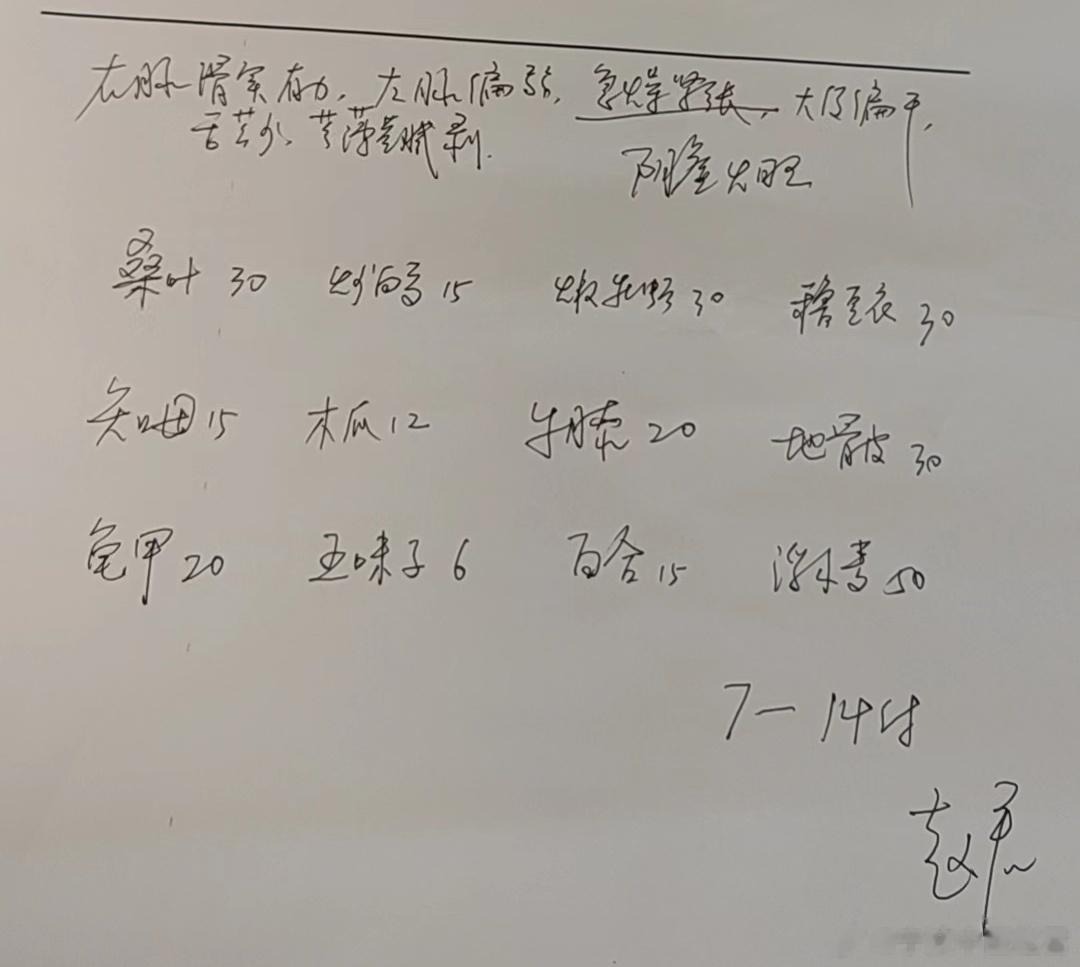 右脉滑实有力，左脉偏弱，急燥紧张，大便偏干，
舌苔少，苔薄黄腻剥。
阴虚火旺
桑叶30 炒白芍15 煅牡蛎30 穞豆衣30
知母15 木瓜12 牛膝20 地骨皮30
龟甲20 五味子6 百合15 浮小麦50
7—14付